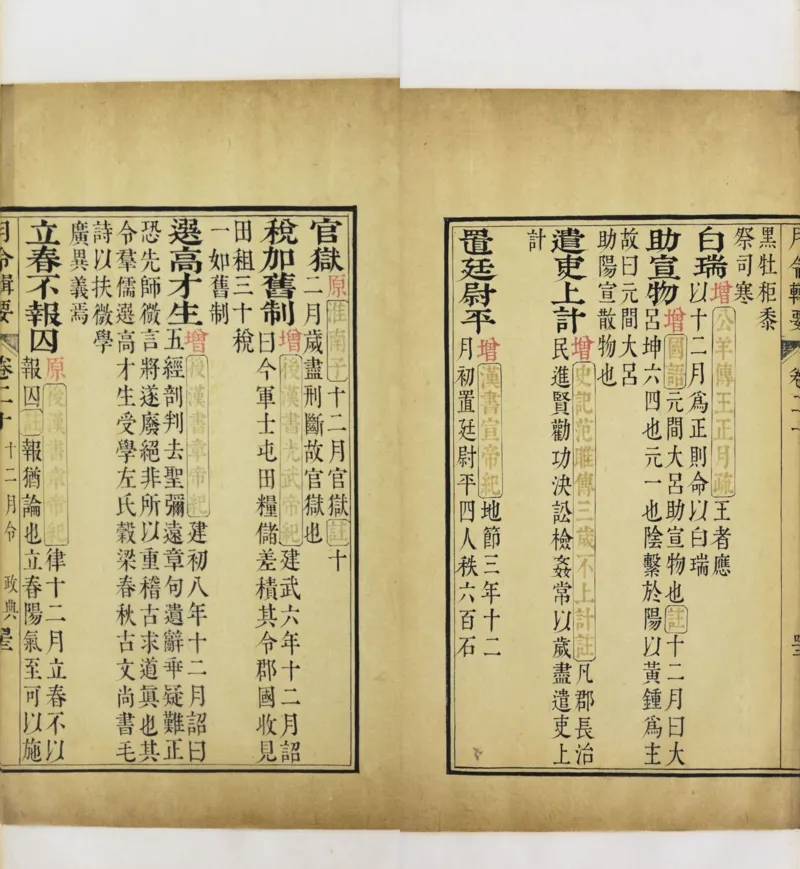 月令輯要 卷二十
黑牡秬黍
祭司寒
白瑞增公羊傳王正月疏王者應
以十二月爲正則命以白瑞
助宣物增國語元間大呂助宣物也註十二月曰大
呂坤六四也元一也陰繫於陽以黃鍾爲主
故曰元間大呂
助陽宣散物也
遣吏上計增史記范雎傳三歲不上計註凡郡長治
民進賢勸功決訟檢姦常以歲盡遣吏上
計
置廷尉平增漢書宣帝紀地節三年十二
月初置廷尉平四人秩六百石
官獄原淮南子十二月官獄註十
二月歲盡刑斷故官獄也
稅如舊制增後漢書光武帝紀建武六年十二月詔
曰今軍士屯田糧儲差積其令郡國收見
田租三十稅
一如舊制
選高才生增後漢書章帝紀建初八年十二月詔曰
五經剖判去聖彌遠章句遺辭乖疑難正
恐先師微言將遂廢絕非所以重稽古求道眞也其
令羣儒選高才生受學左氏穀梁春秋古文尚書毛
詩以扶微學
廣異義焉
立春不報囚原後漢書章帝紀律十二月立春不以
報囚註報猶論也立春陽氣至可以施
月令輯要 卷二十 十二月令 政典